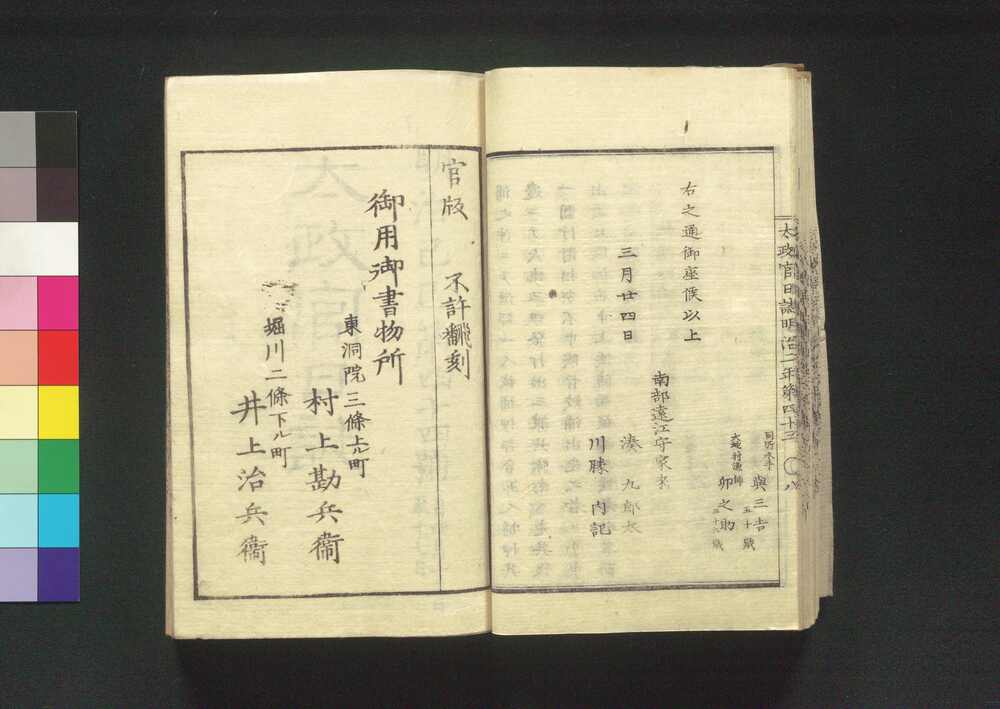 太政官日誌明治二年第四十三 〇八
同所水手 與三吉 五十歲
大畑村漁師 卯之助 三十六歲
右之通御座候以上
三月廿四日
南部遠江守家来
湊 九郎太
川勝 内記
官版 不許翻刻
御用御書物所
東洞院三條上ル町
村上勘兵衞
堀川二條下ル町
井上治兵衞